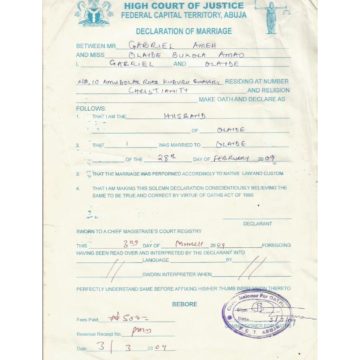 HIGH COURT OF JUSTICE
FEDERAL CAPITAL TERRITORY, ABUJA
DECLARATION OF MARRIAGE
BETWEEN MR GABRIEL AMEH
AND MISS OLAIDE BUKOLA
I GABRIEL AND OLAIDE
RESIDING AT NUMBER
CHRISTIANITY AND RELIGION
MAKE OATH AND DECLARE AS
FOLLOWS.
1. THAT I AM THE HUSBAND
OF OLAIDE
2. THAT I WAS MARRIED TO OLAIDE
OF THE 28th OF FEBRUARY 2009
3. THAT THE MARRIAGE WAS PERFORMED ACCORDINGLY TO NATIVE LAW AND CUSTOM
4. THAT I AM MAKING THIS SOLEMN DECLARATION CONSCIENTIOUSLY BELIEVING THE
SAME TO BE TRUE AND CORRECT BY VIRTUE OF OATHS ACT OF 1990
DECLARANT
SWORN TO A CHIEF MAGISTRATE'S COURT REGISTRY
THIS 3rd DAY OF March 09 FOREGOING
HAVING BEEN READ OVER AND INTERPRETED BY THE DECLARANT INTO
LANGUAGE BY
SWORN INTERPRETER WHEN
PERFECTLY UNDERSTAND SAME BEFORE AFFIXING HIS/HER THUMB IMPRESSION THERETO
BEBORE
Fees Paid
Revenue Receipt No
Date 3/3/09